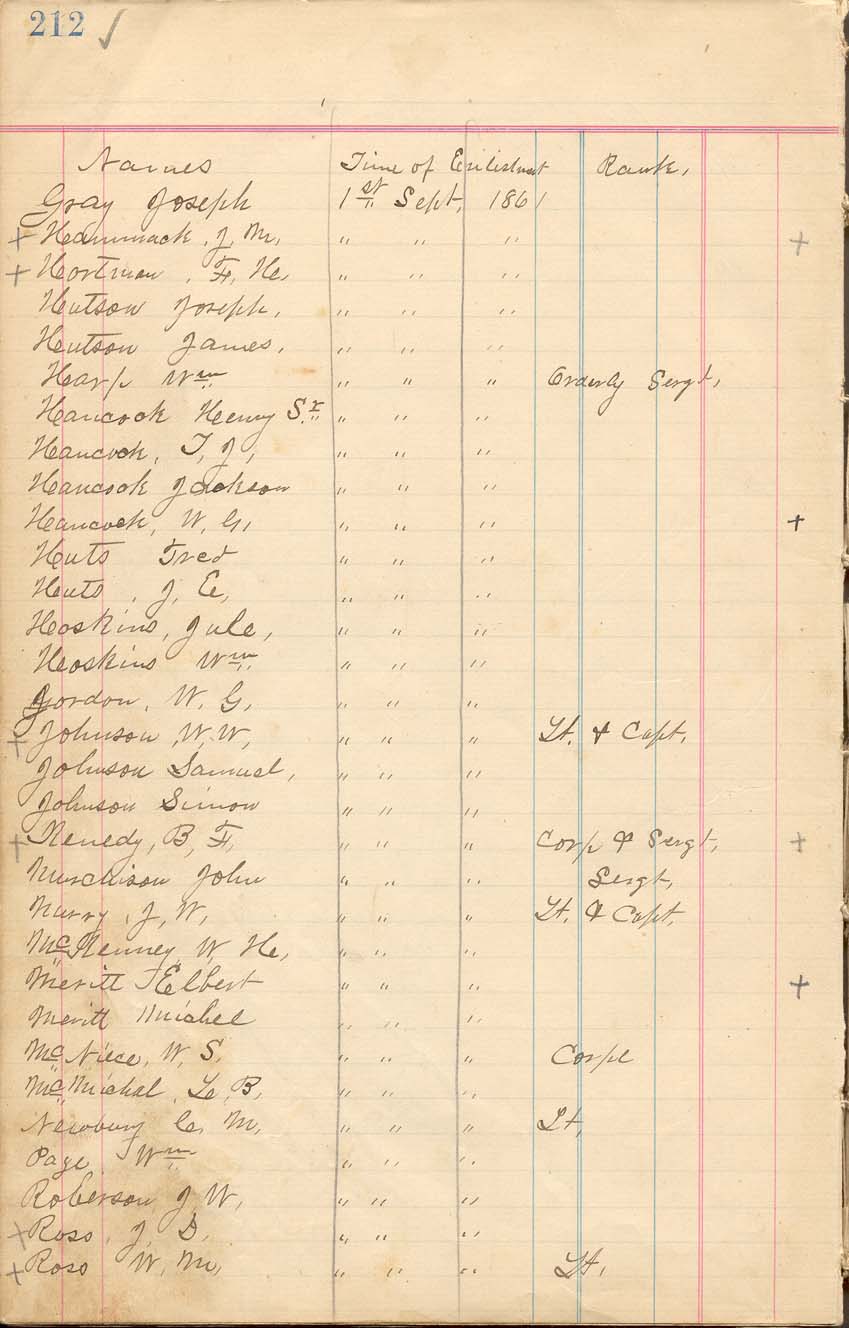 212 ✓
Names Time of Enlistment Rank,
Gray Joseph 1st Sept, 1861
+ Hammack, J, M, " " " +
+ Hortman, F, H, " " "
Hutson Joseph, " " "
Hutson James, " " "
Harp Wm " " " Orderly Sergt,
Hancock Henry Sr " " "
Hancock, T, J, " " "
Hancock Jackson " " "
Hancock, W, G, " " " +
Huts Fred " " "
Huts, J, E, " " "
Hoskins, Jule, " " "
Hoskins Wm " " "
Jordon, W, G, " " "
+ Johnson, W, W, " " " Lt. & Capt,
Johnson Samuel, " " "
Johnson Simon " " "
+ Kenedy, B, F, " " " Corp & Sergt, +
Murchison John " " " Sergt,
Murry, J, W, " " " Lt. & Capt,
McKenney, W, H, " " "
Meritt Elbert " " " +
Meritt Michel " " "
McNiece, W, S, " " " Corpl
McMichal, L, B, " " "
Newbury C, M, " " " Lt,
Page Wm " " "
Roberson J, W, " " "
+ Ross, J, D, " " "
+ Ross W, M, " " " Lt,